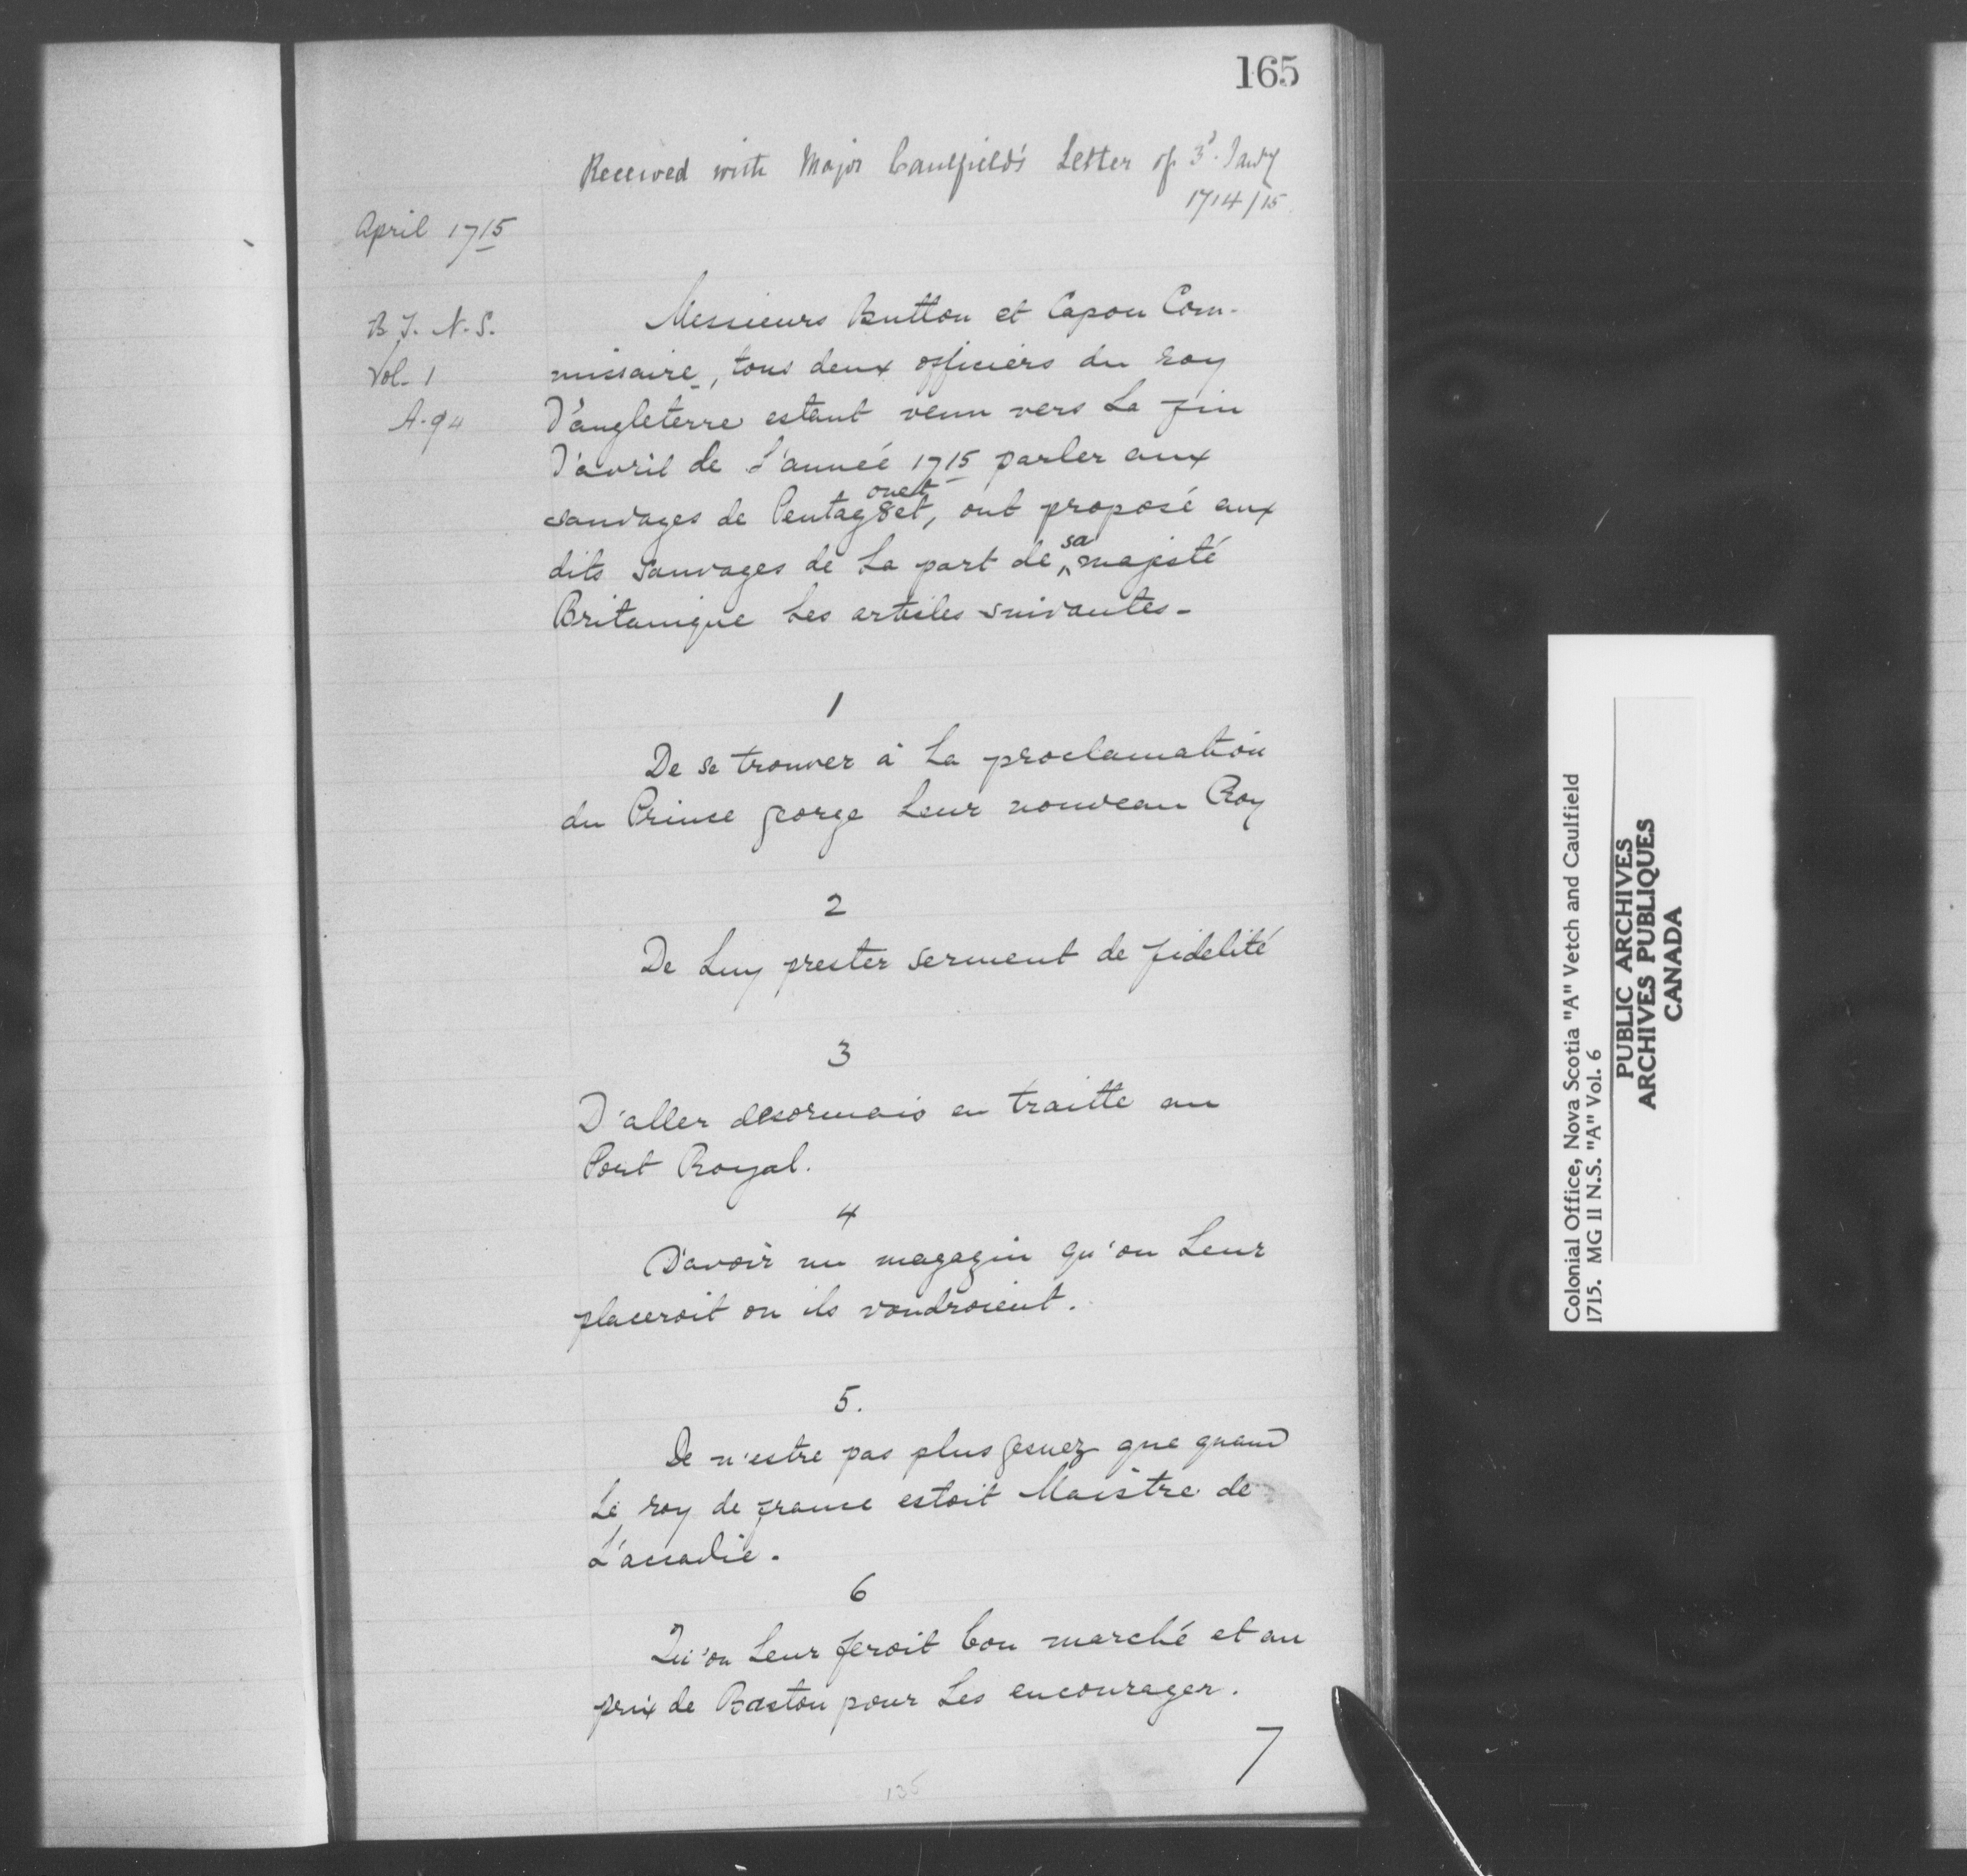 165
Received with Major Caulfield's Letter of 3d. Janry
1714/15
April 1715
B.T. N.S.
Vol. 1
A. 94
Messieurs Button et Capon Com-
missaire, tous deux officiers du roy
D'angleterre estant venu vers La fin
D'avril de L'année 1715 parler aux
ouet
sauvages de Pentag8et, ont proposé aux
sa
dits Sauvages de La part de ^ majesté
Britanique Les artiles suivantes-
1
De se trouver à La proclamation
du Prince george Leur nouveau Roy
2
De Luy prester serment de fidelité
3
D'aller desormais en traitte au
Port Royal.
4
D'avoir un magazin qu'on Leur
placeroit ou ils voudroient.
5.
De n'estre pas plus gesnez que quand
Le roy de france estoit Maistre de
L'accadie.
6
Qu'on Leur feroit bon marché et au
prix de Baston pour Les encourager.
7
135
Colonial Office, Nova Scotia "A" Vetch and Caulfield
1715. MG 11 N.S. "A" Vol. 6
PUBLIC ARCHIVES
ARCHIVES PUBLIQUES
CANADA